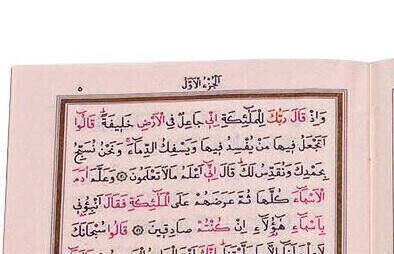 الجزء الأول
٥
وَإِذْ قَالَ رَبُّكَ لِلْمَلٰٓئِكَةِ اِنّ۪ي جَاعِلٌ فِي الْاَرْضِ خَل۪يفَةًۜ قَالُٓوا
اَتَجْعَلُ ف۪يهَا مَنْ يُفْسِدُ ف۪يهَا وَيَسْفِكُ الدِّمَٓاءَۚ وَنَحْنُ نُسَبِّحُ
بِحَمْدِكَ وَنُقَدِّسُ لَكَۜ قَالَ اِنّ۪ٓي اَعْلَمُ مَا لَا تَعْلَمُونَ ۝ وَعَلَّمَ اٰدَمَ
الْاَسْمَٓاءَ كُلَّهَا ثُمَّ عَرَضَهُمْ عَلَى الْمَلٰٓئِكَةِ فَقَالَ اَنْبِؤُ۫ن۪ي
بِاَسْمَٓاءِ هٰٓؤُ۬لَٓاءِ اِنْ كُنْتُمْ صَادِق۪ينَ ۝ قَالُوا سُبْحَانَكَ
لَا عِلْمَ لَنَٓا اِلَّا مَا عَلَّمْتَنَاۜ اِنَّكَ